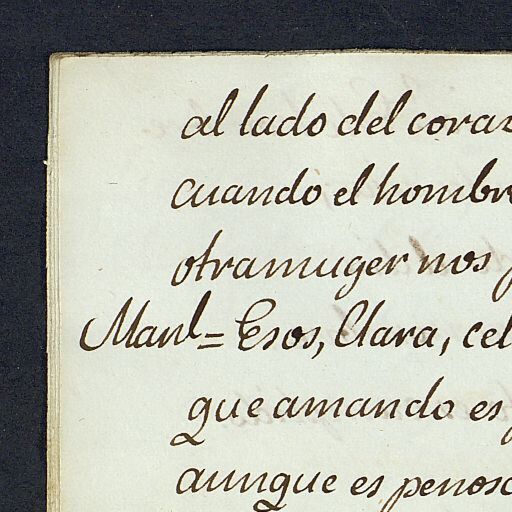 al lado del coraz
cuando el hombre
otra muger nos
Manl= Esos, Clara, cel
que amando es
aunque es penoso